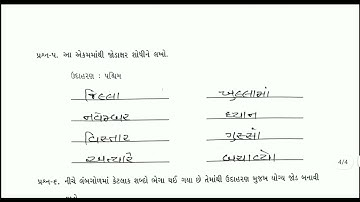 પ્રશ્ન-૫. આ એકમમાંથી જોડાક્ષર શોધીને લખો.
ઉદાહરણ : પશ્ચિમ
જિલ્લા ખુલ્લામાં
નવેમ્બર ધ્યાન
વિસ્તાર ગુસ્સો
અત્યારે બચાવ્યો
4/4
પ્રશ્ન-૬. નીચે લંબગોળમાં કેટલાક શબ્દો ભેગા થઈ ગયા છે તેમાંથી ઉદાહરણ મુજબ યોગ્ય જોડ બનાવી